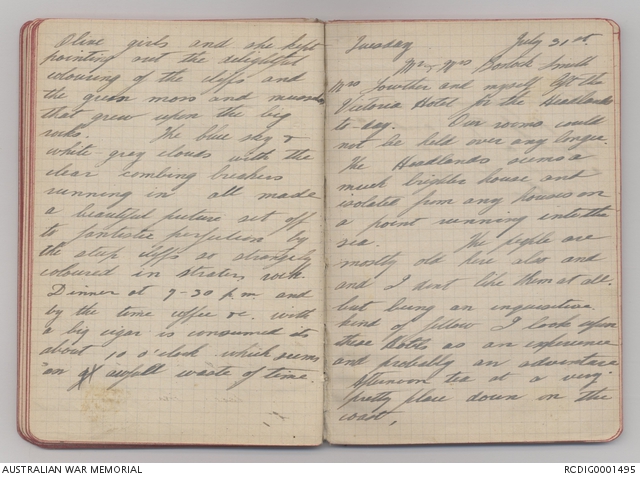 Olive girls and she kept
pointing out the delightful
colouring of the cliffs and
the green moss and
that grew upon the big
rocks. The blue sky &
white-grey clouds with the
clear combing breakers
running in all made
a beautiful picture set off
to fantastic perfection by
the steep cliffs so strangely
coloured in stratas
Dinner at 7-30 p.m. and
by the time coffee &c. with
a big cigar is consumed its
about 10 o'clock which seems
an awful waste of time.
Tuesday July 31st.
Mr & Mrs Smith
Mrs Lowther and myself left the
Victoria Hotel for the Headlands
to-day. Our rooms could
not be held over any longer.
The Headlands seems a
much brighter house and
isolated from any houses on
a point running into the
sea. The people are
mostly old here also and
and I dont like them at all.
but being an inquisitive
kind of fellow I look upon
these as an experience
and probably an adventure
afternoon tea at a very
pretty place down on the
coast.
AUSTRALIAN WAR MEMORIAL
RCDIG0001495